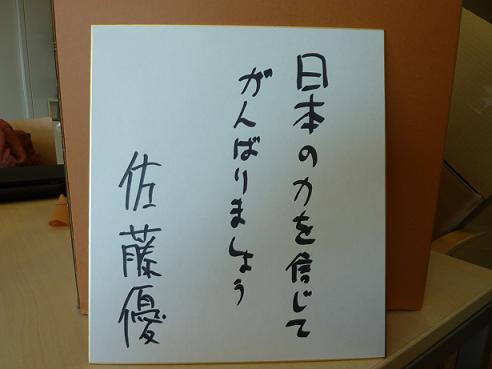 日本の力を信じて
がんばりましょう
佐藤優